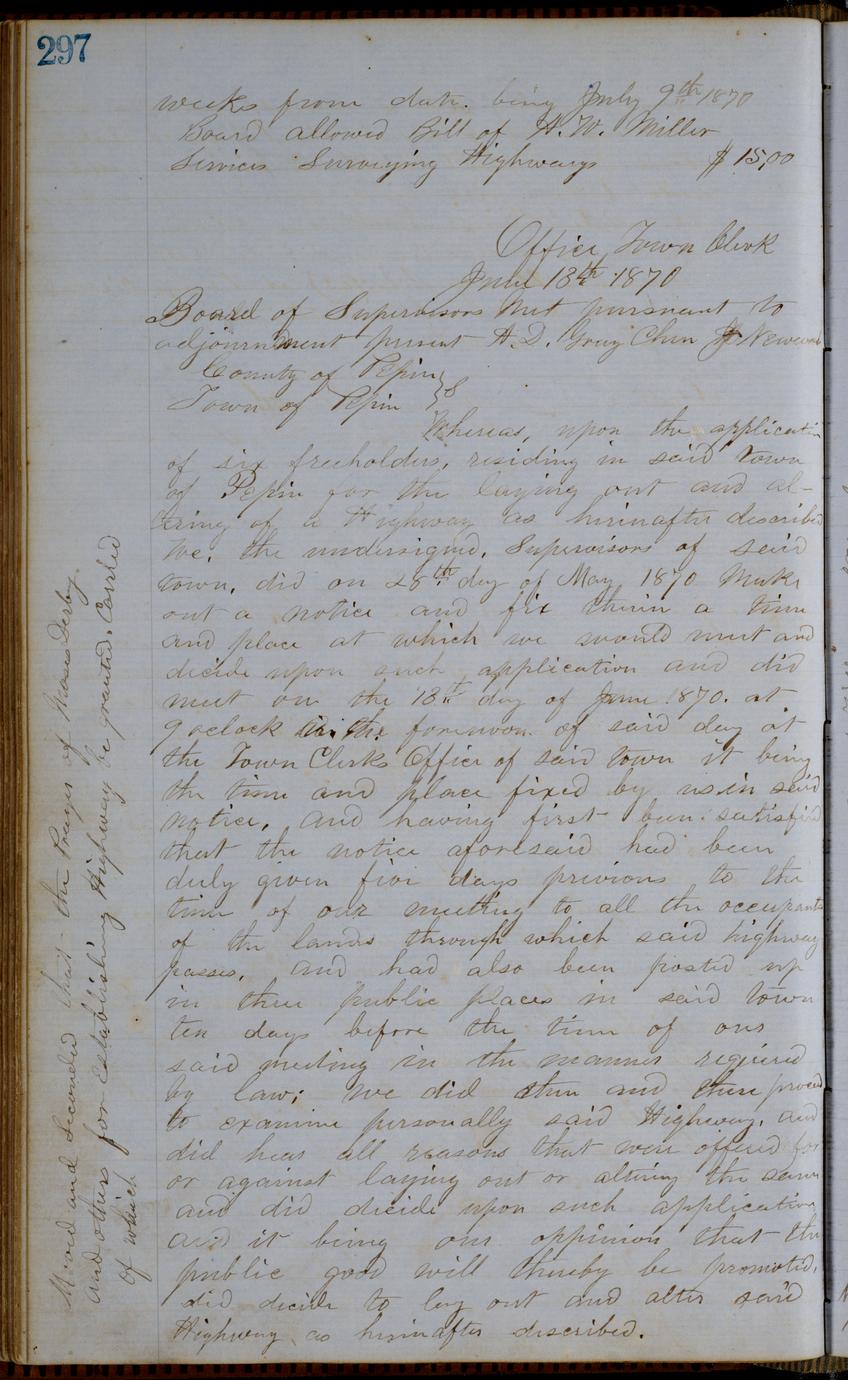 297
weeks from date. being July 9th 1870
Board allowed Bill of H. W. Miller
Services Surveying Highways $15,00
Office Town Clerk
June 18th 1870
Board of Supervisors Met pursuant to
adjournment present A. D. Gray Chm J.
County of Pepin
Town of Pepin
Whereas, upon the applicatin
of six freeholders, residing in said town
of Pepin for the laying out and al-
tering of a Highway as hirinafter described
We, the undersigned, Supervisors of said
town, did on 28th day of May 1870 Make
out a notice and fix therin a time
and place at which we would meet and
decide upon such application and did
meet on the 18th day of June 1870. at
9 oclock in the forenoon of said day at
the Town Clerks Office of said town it being
the time and place fixed by us in said
notice, and having first been satisfied
that the notice aforesaid had been
duly given five days previous to the
time of our meeting to all the occupants
of the lands through which said highway
passes, and had also been posted up
in three public places in said town
ten days before the time of our
said meeting in the manner required
by law; We did then and there proceed
to examine personally said Highway, and
did hear all reasons that were offered for
or against laying out or altering the same
and did decide upon such application
and it being our oppinion that the
public good will thereby be promoted,
did decide to lay out and alter said
Highway as hirinafter described.
Moved and Seconded that the Prayer of Moses Derby
and others for Establishing Highway be granted. Carried
of which